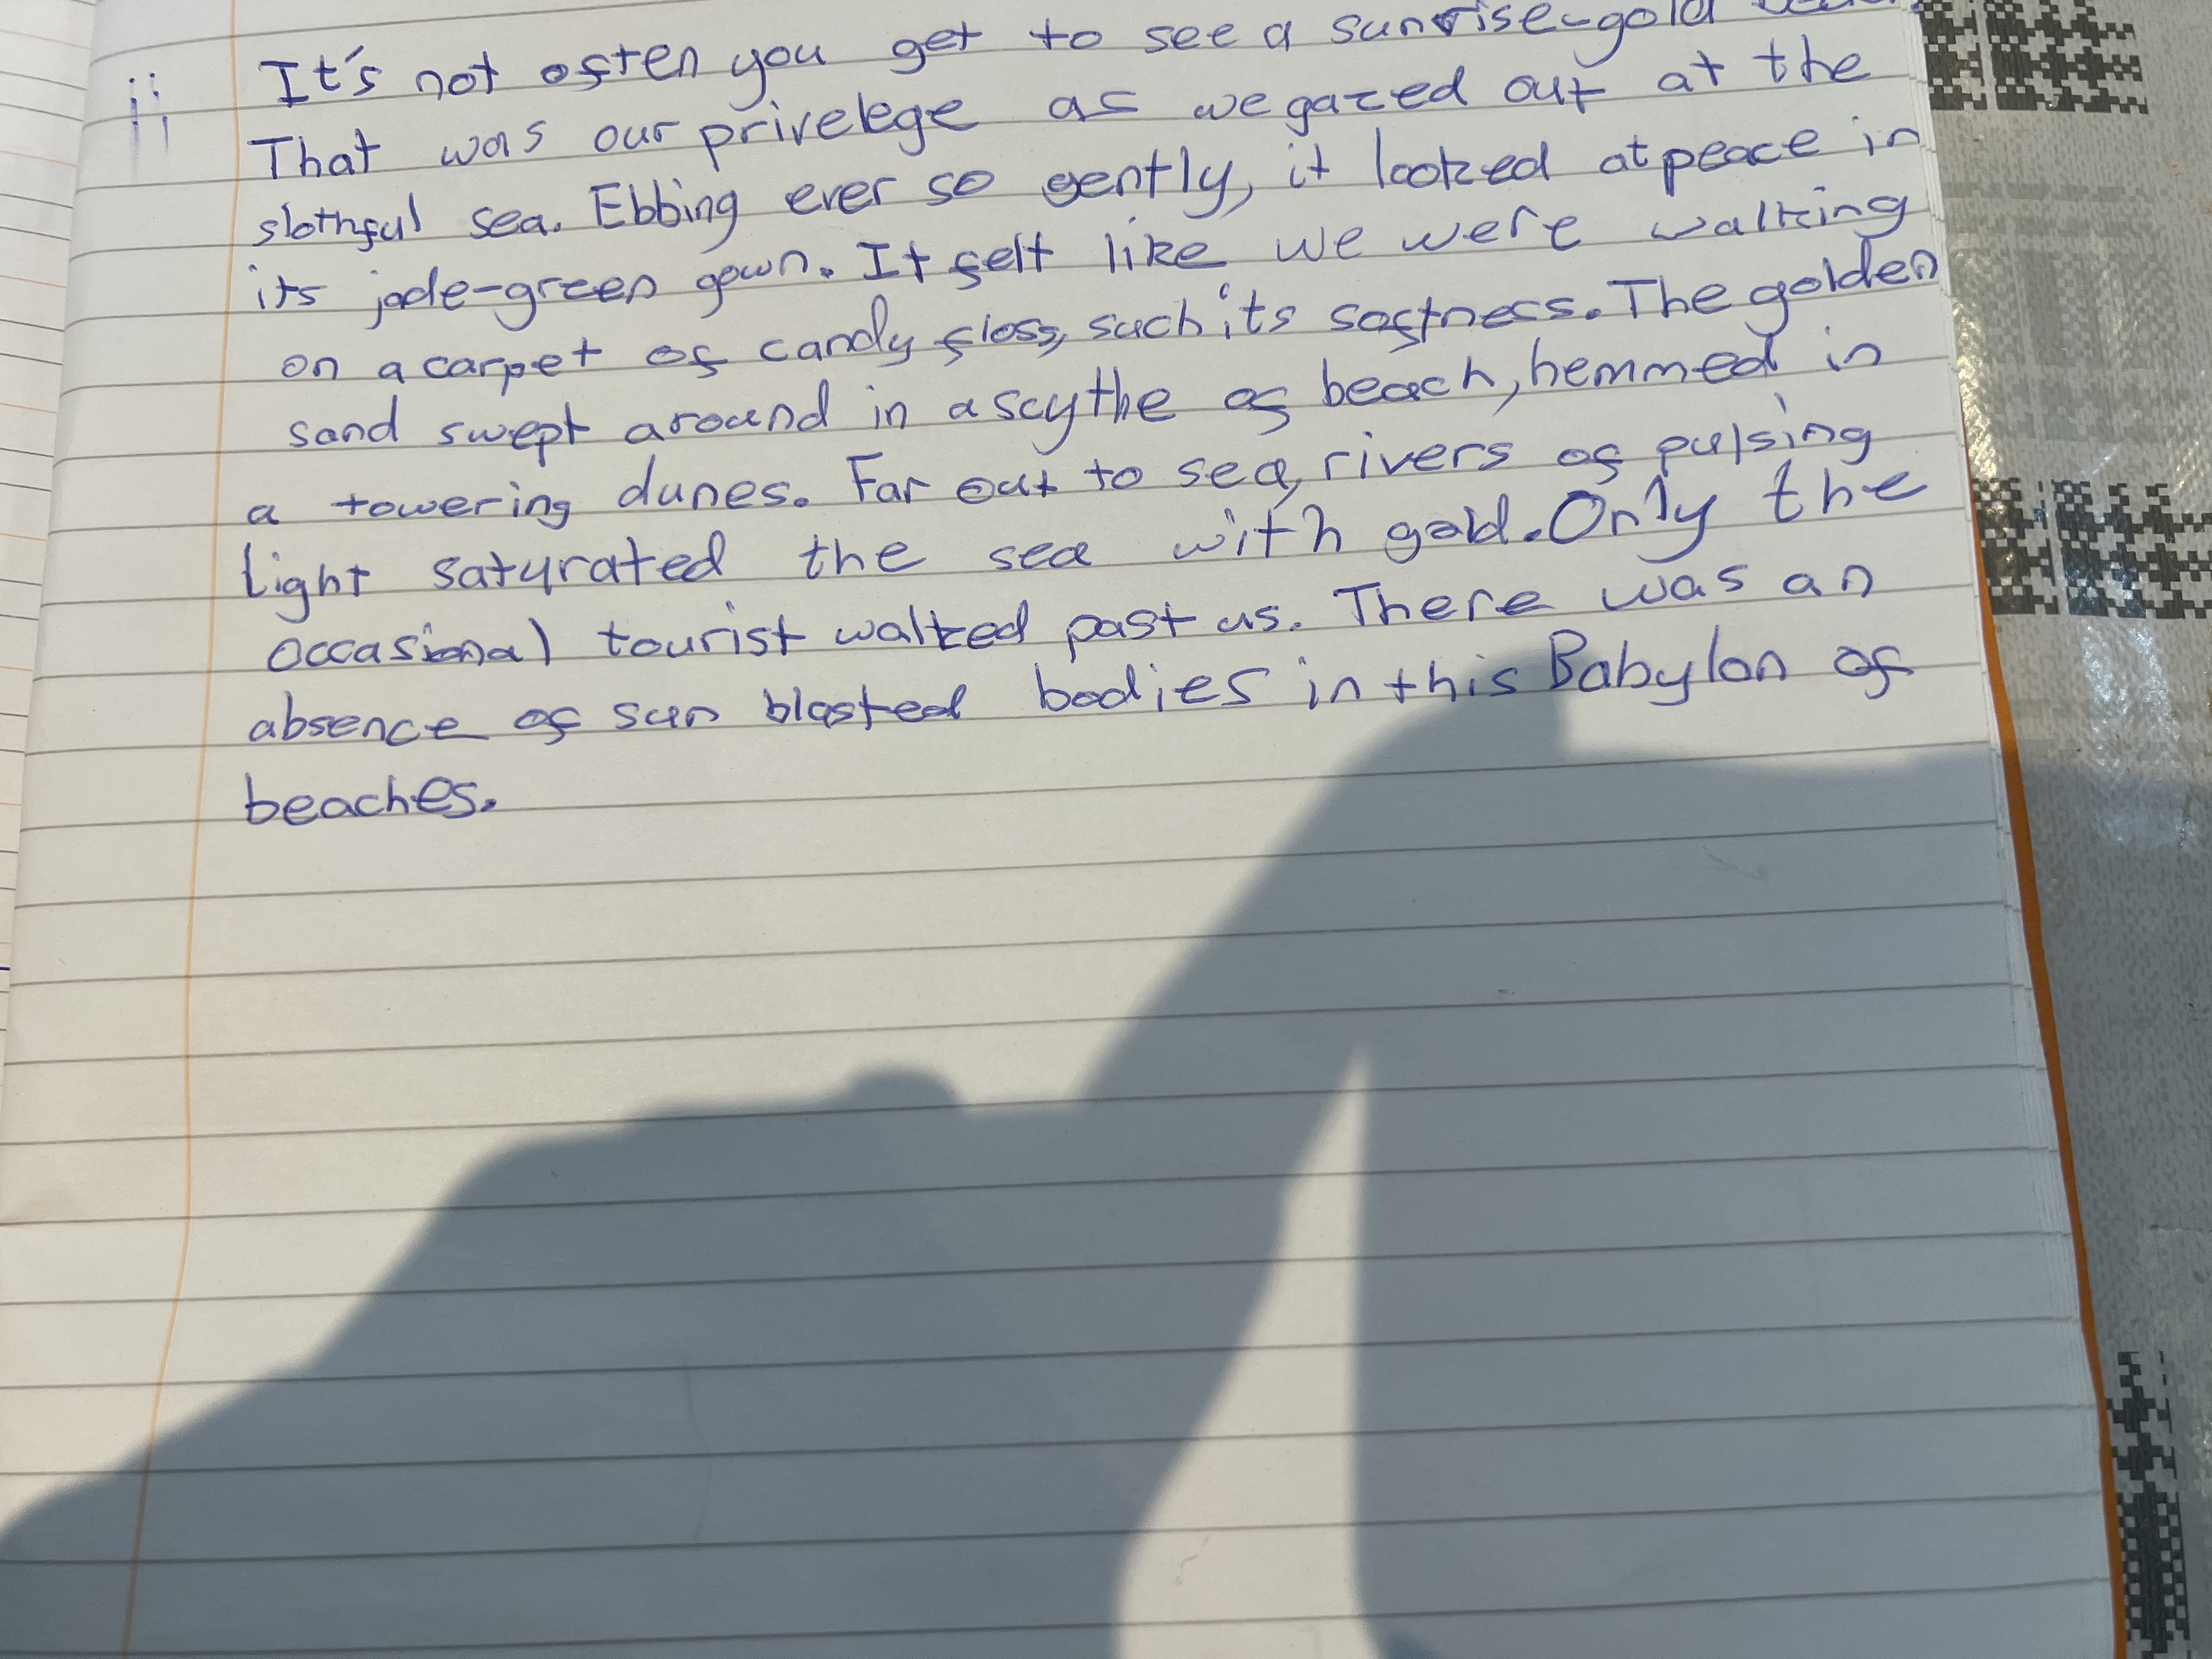 ii It's not often you get to see a sunrise-gold
That was our privelege as we gazed out at the
slothful sea. Ebbing ever so gently, it looked at peace in
its jade-green gown. It felt like we were walking
on a carpet of candy floss, such its softness. The golden
sand swept around in a scythe of beach, hemmed in
a towering dunes. Far out to sea, rivers of pulsing
light saturated the sea with gold. Only the
occasional tourist walked past us. There was an
absence of sun blasted bodies in this Babylon of
beaches.